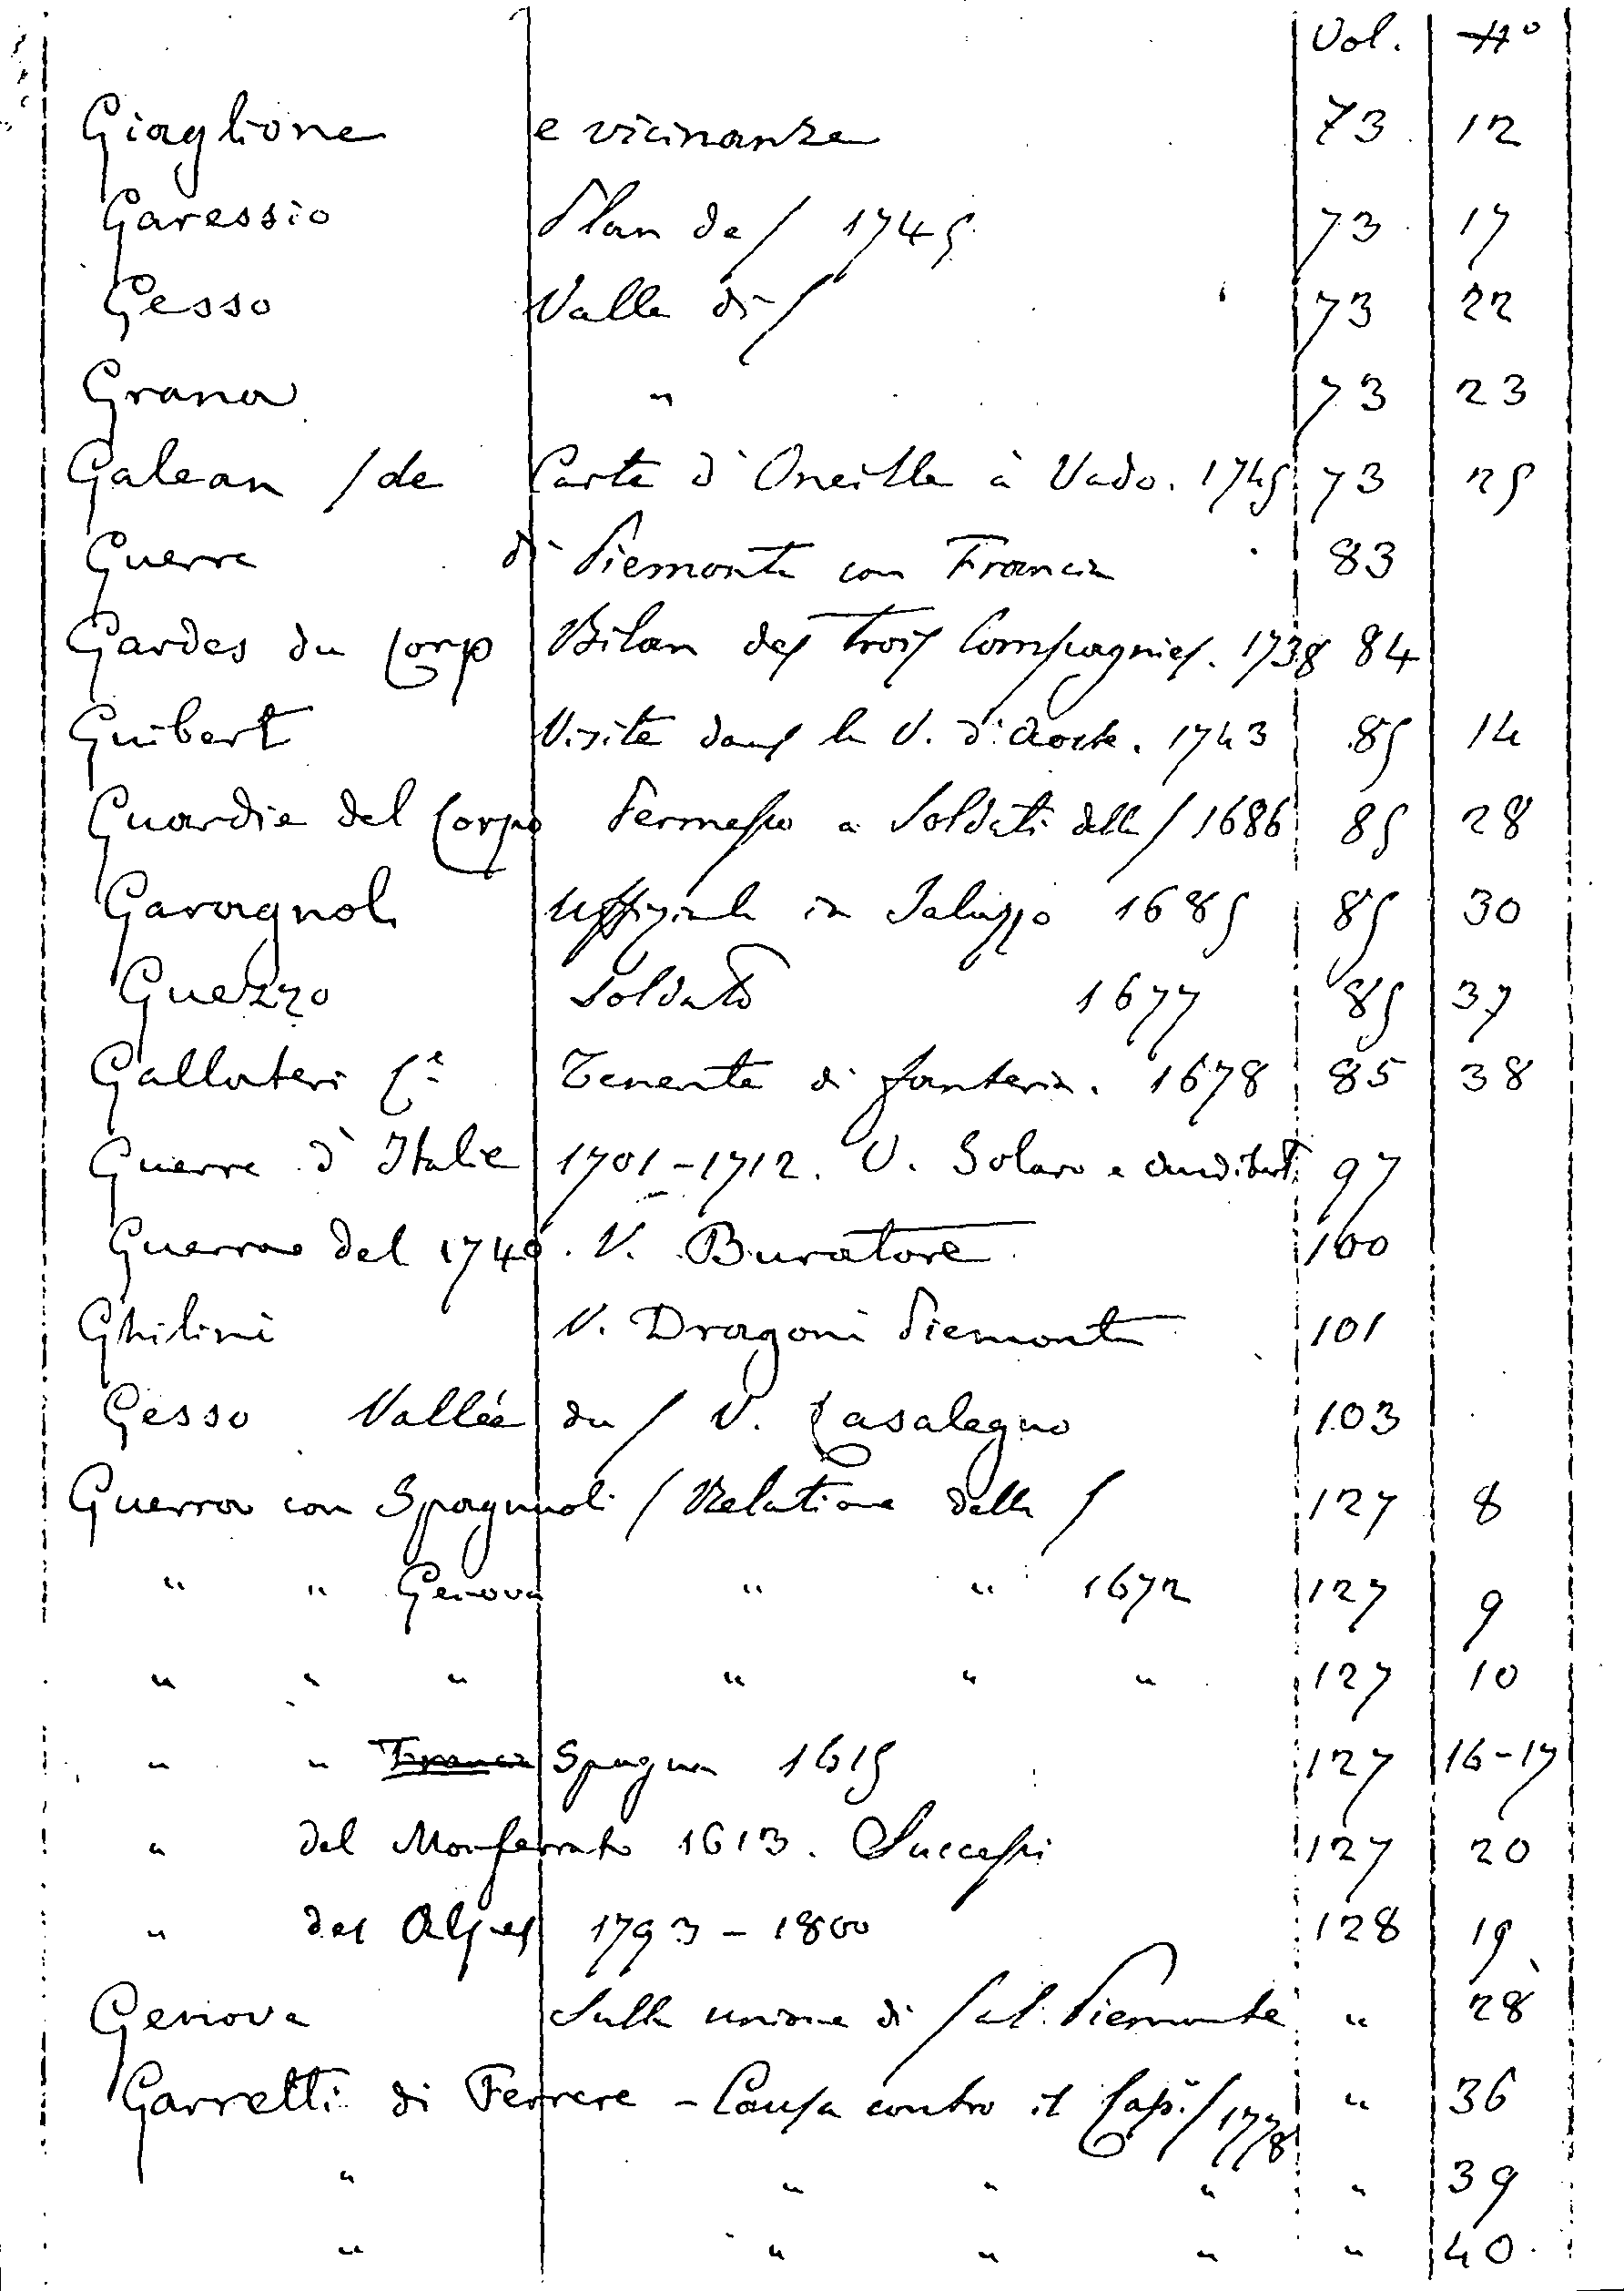 Vol. N°
Giaglione e vicinanze 73 12
Garessio Plan de / 1745 73 17
Gesso Valle di / 73 22
Grana " 73 23
Galean / de Carte d'Oneille à Vado. 1745 73 25
Guerre di Piemonte con Francia 83
Gardes du Corp Bilan des trois Compagnies. 1738 84
Guibert Visite dans la V. d'Aoste. 1743 85 14
Guardie del Corpo Permesso a Soldati delle / 1686 85 28
Garagnoli Uffiziale in Saluzzo 1685 85 30
Guezzo Soldato 1677 85 37
Gallateri Tenente di fanteria. 1678 85 38
Guerre d'Italie 1701-1712. V. Solaro e Audibert 97
Guerra del 1740. V. Buratore 100
Ghilini V. Dragoni Piemonte 101
Gesso Vallée du / V. Casalegno 103
Guerra con Spagnuoli / Relatione della / 127 8
" " Genova " " 1672 127 9
" " " " " " 127 10
" " Francia Spagna 1615 127 16-17
" del Monferrato 1613. Successi 127 20
" des Alpes 1793-1800 128 19
Genova Sulla unione di / al Piemonte " 28
Garretti di Ferrere - Causa contro il Cap. / 1778 " 36
" " " " " 39
" " " " " 40